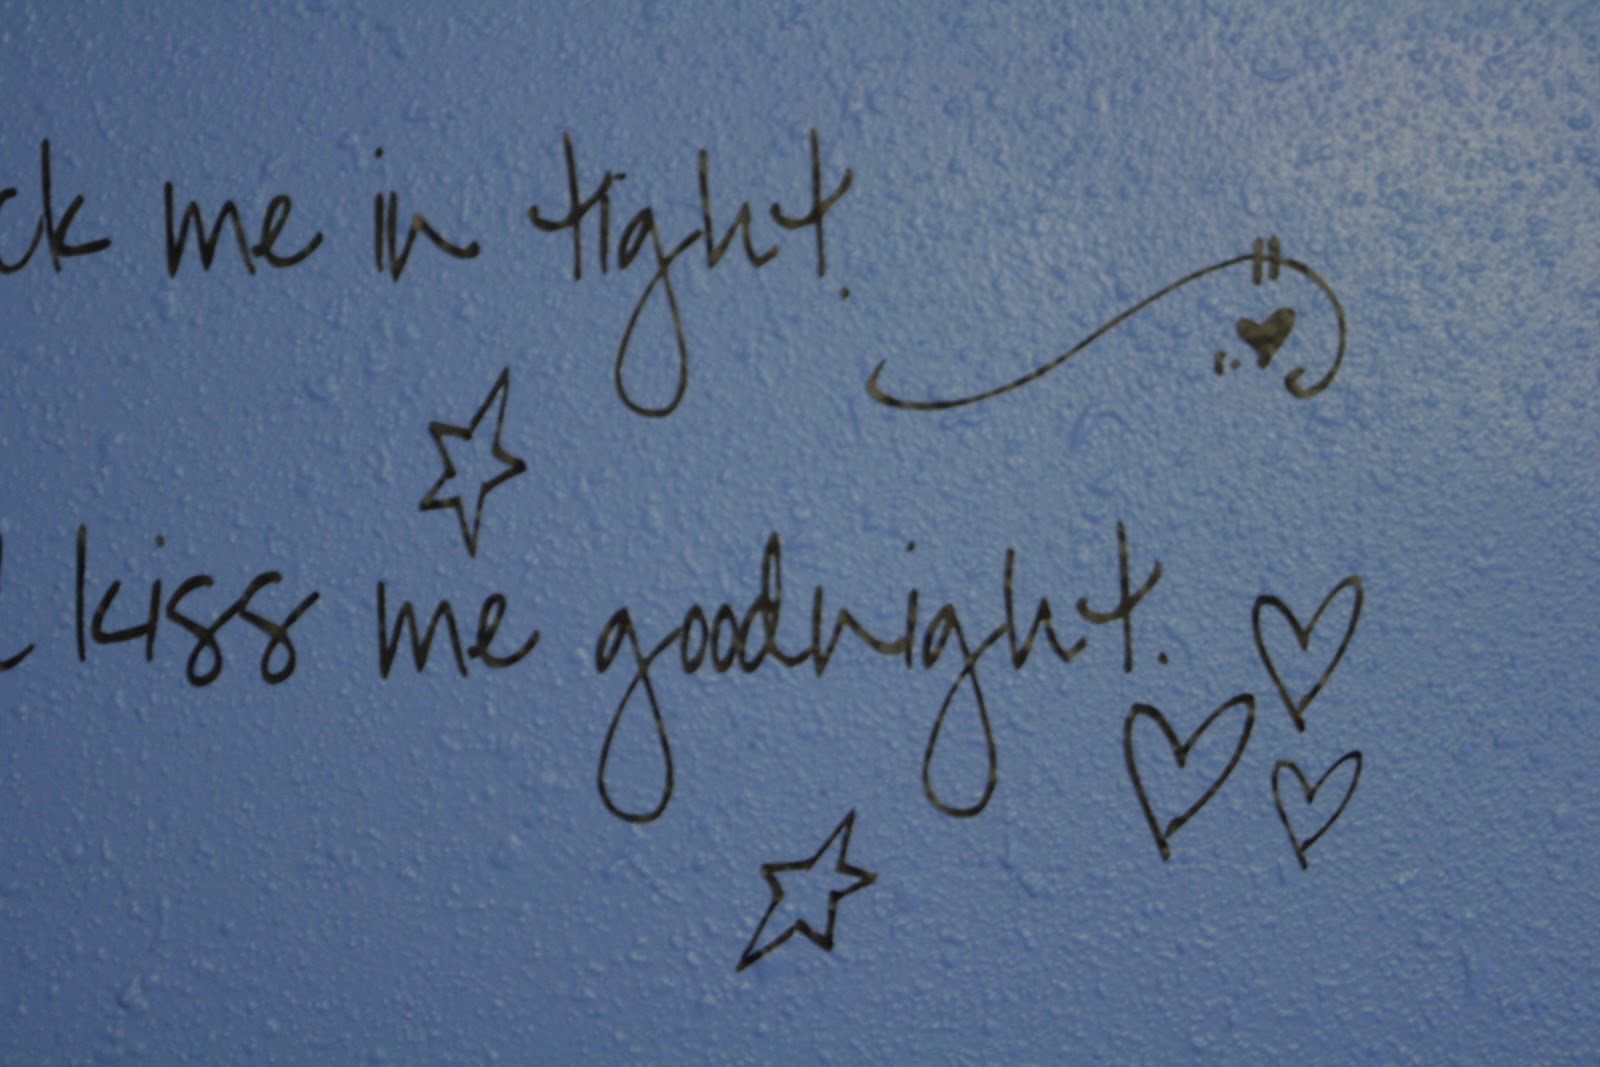 ck me in tight.
kiss me goodnight.